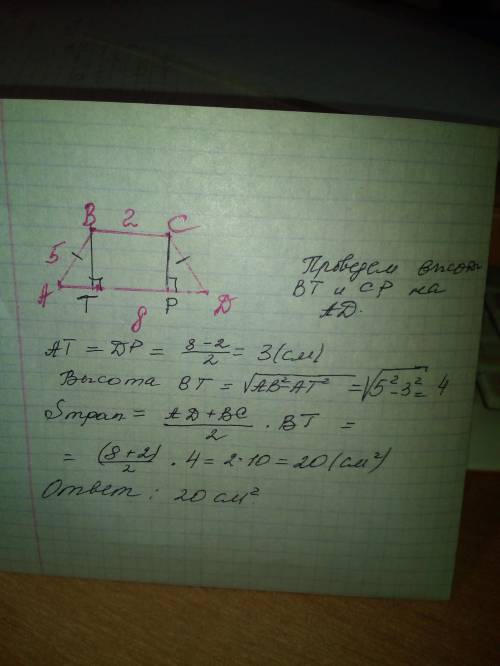 B 2 C
5
A T 8 P D
Проведем высоты
BT и CP на
AD.
AT = DP = (8-2)/2 = 3 (см)
Высота BT = √(AB²-AT²) = √(5²-3²) = 4
Sтрап = (AD+BC)/2 · BT =
= (8+2)/2 · 4 = 2·10 = 20 (см²)
Ответ: 20 см²